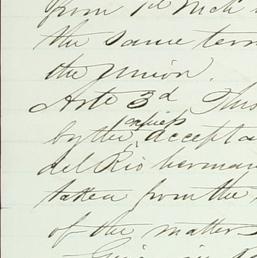 from 1st
the same ter
the Union.
Arto 3d This
by the accepta
del Rio herman
taken from the
of the matters